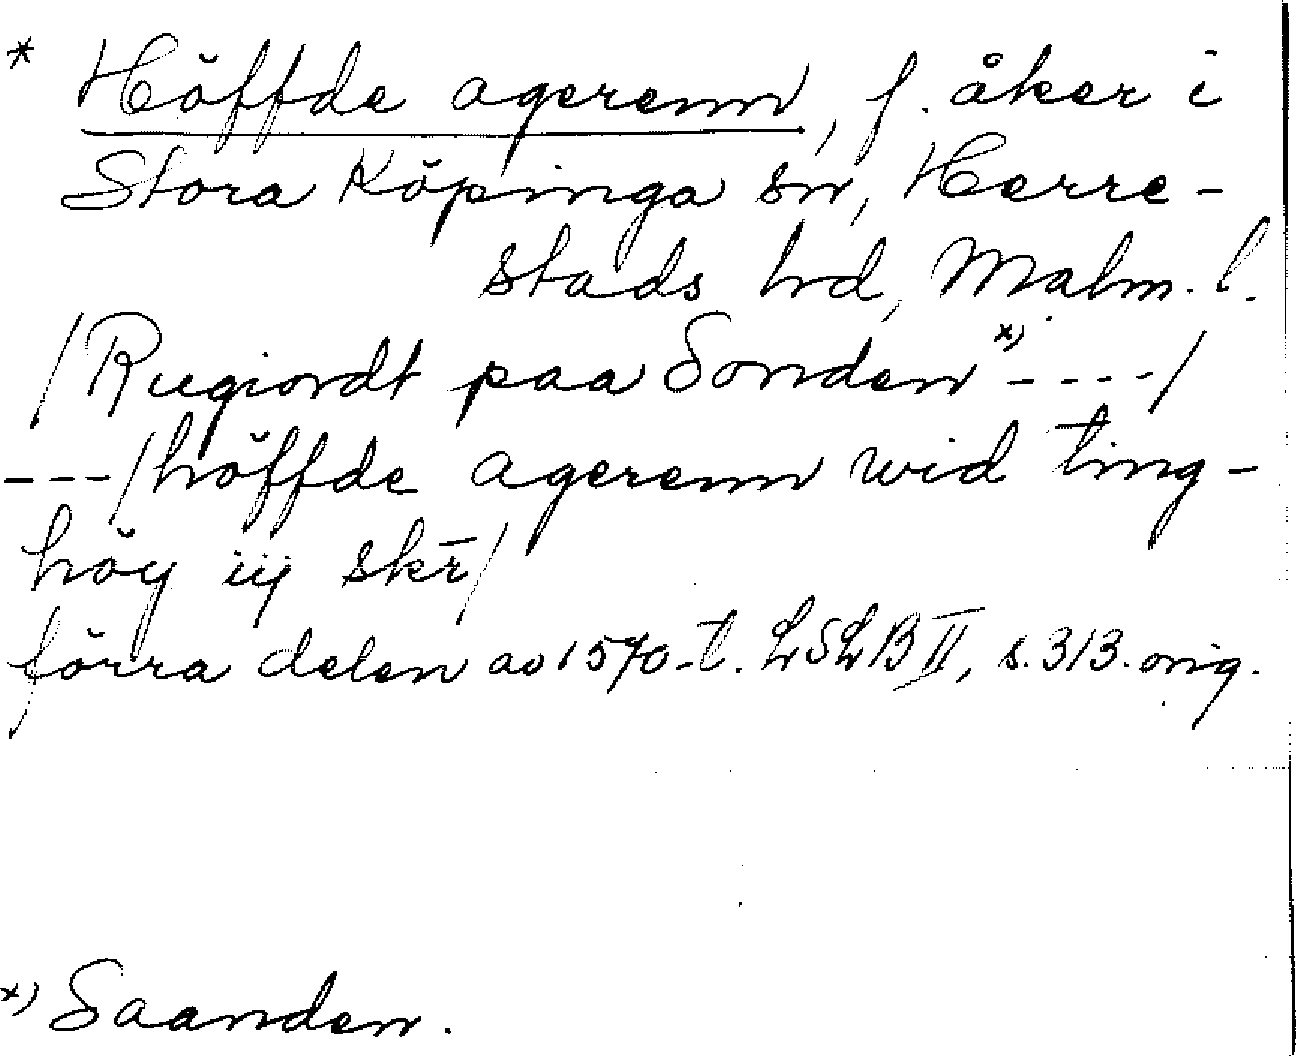 * Höffde agerenn, f. åker i
Stora Köpinga sn, Herre-
stads hd, Malm. l.
/Rugiordt paa Sonden x) ----/
---/höffde agerenn wid ting-
höy iij skr̄/
förra delen av 1570-t. LSLB II, s. 313. orig.
x) Saanden.